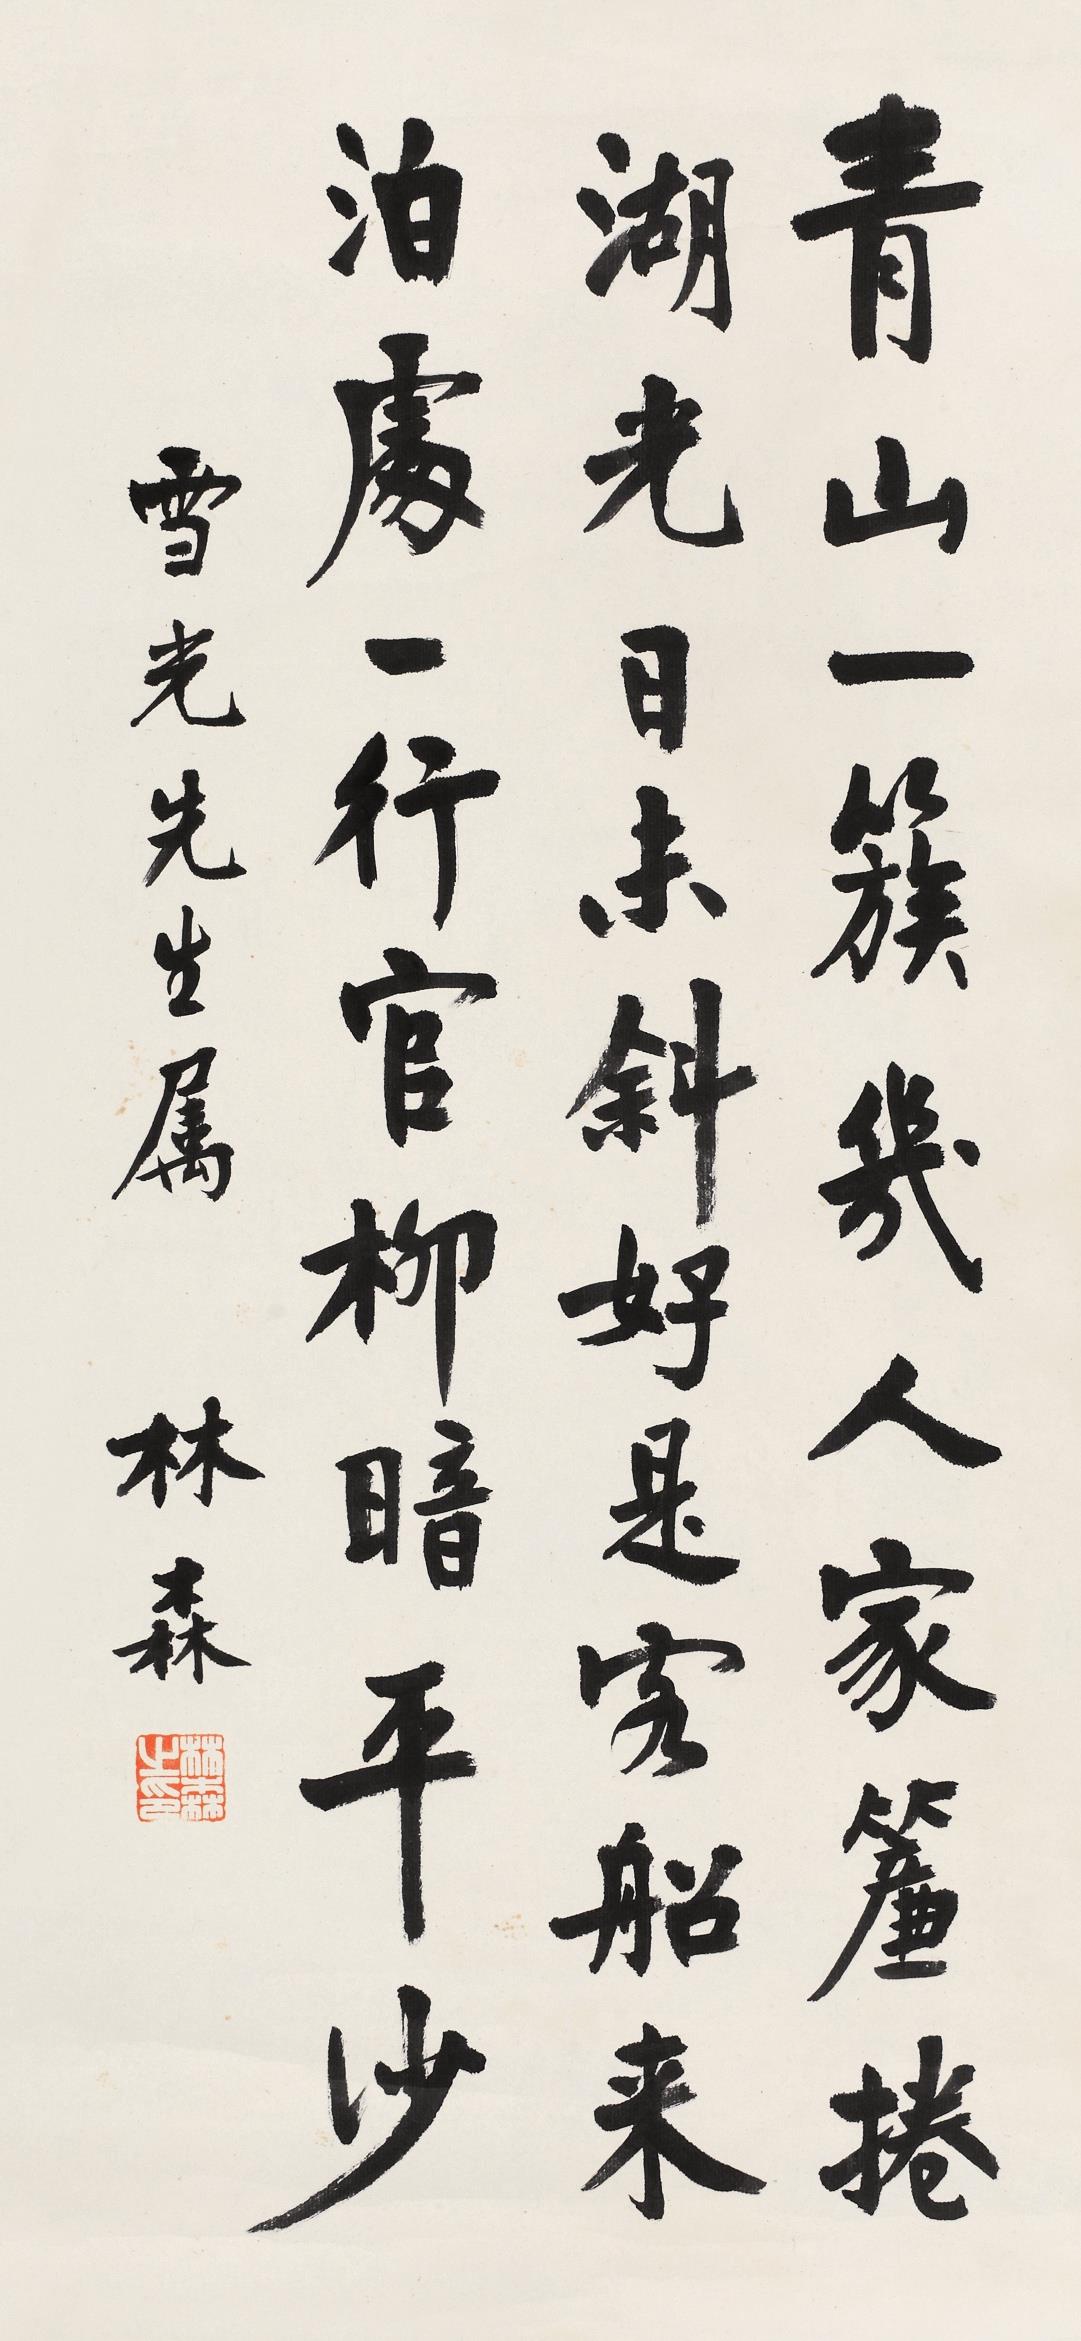 青山一簇幾人家簾捲
湖光日未斜好是客船来
泊處一行官柳暗平沙
雪光先生属
林森
林森之印